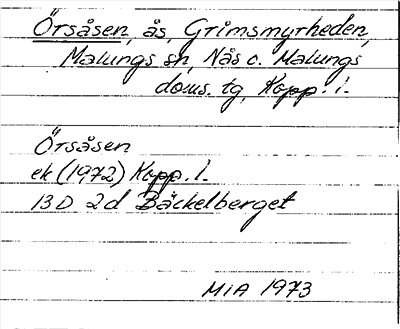 Örsåsen, ås, Grimsmyrheden,
Malungs sn, Nås o. Malungs
doms. tg, Kopp. l.
Örsåsen
ek (1972) Kopp. l.
13D 2d Bäckelberget
MiA 1973